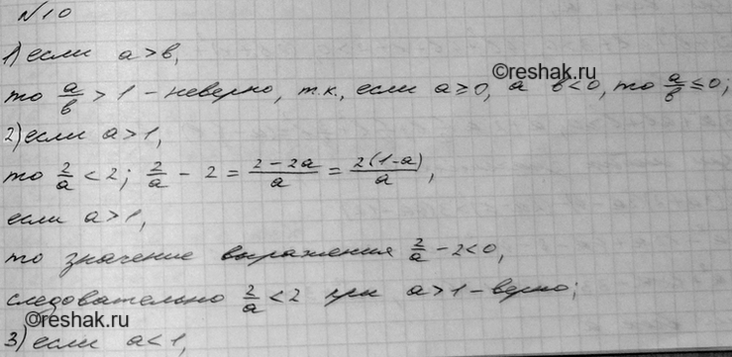 №10
1) если a > в,
то a/в > 1 - неверно, т.к., если a ≥ 0, а в < 0, то a/в ≤ 0;
©reshak.ru
2) если a > 1,
то 2/a < 2; 2/a - 2 = (2-2a)/a = 2(1-a)/a,
если a > 1,
то значение выражения 2/a - 2 < 0,
следовательно 2/a < 2 при a > 1 - верно;
©reshak.ru
3) если a < 1,